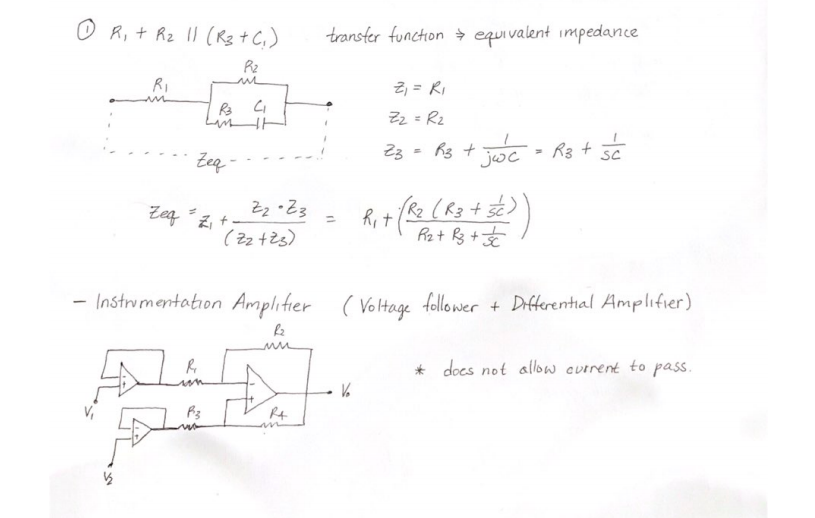 ① R₁ + R₂ || (R₃ + C₁) transfer function → equivalent impedance
R₂
R₁
R₃ C₁
Zeq
Z₁ = R₁
Z₂ = R₂
Z₃ = R₃ + 1/jωC = R₃ + 1/SC
Zeq = Z₁ + Z₂ • Z₃ / (Z₂ + Z₃) = R₁ + (R₂ (R₃ + 1/SC) / R₂ + R₃ + 1/SC)
– Instrumentation Amplifier (Voltage follower + Differential Amplifier)
R₂
R₁
* does not allow current to pass.
V₀
V₁
R₃ R₄
V₂